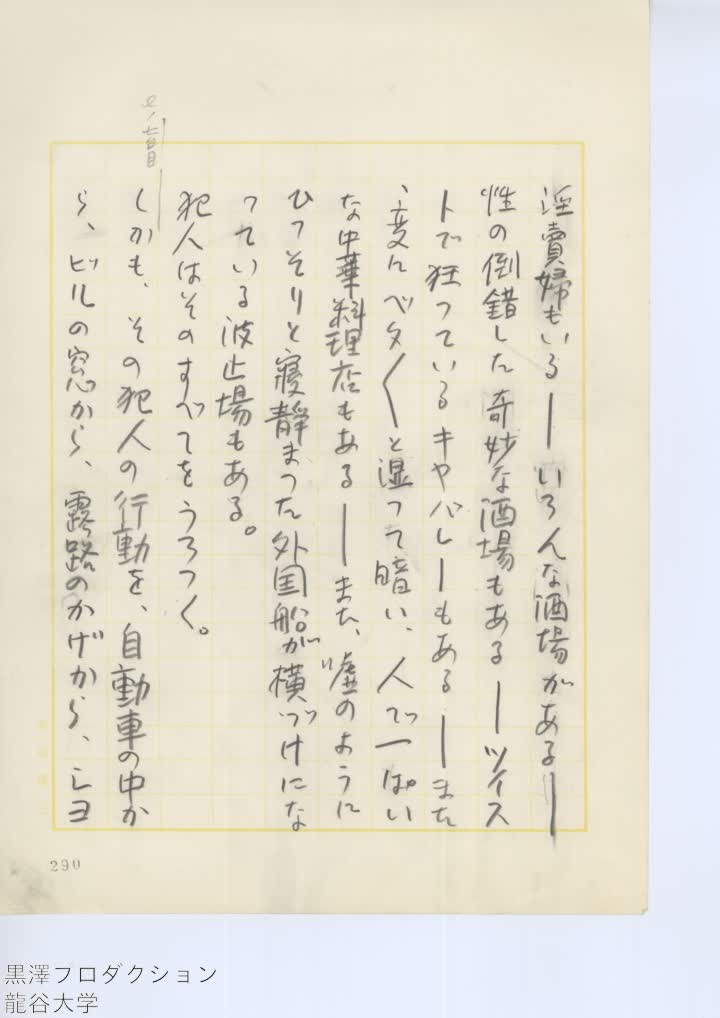 淫賣婦もいる――いろんな酒場がある――
性の倒錯した奇妙な酒場もある――ツイス
トで狂つているキヤバレーもある――また
、変にベタ〱と湿つて暗い、人で一ぱい
な中華料理店もある――また、嘘のように
ひつそりと寝静まつた外国船が横づけにな
つている波止場もある。
犯人はそのすべてをうろつく。
しかも、その犯人の行動を、自動車の中か
ら、ビルの窓から、露路のかげから、シヨ
290
黒澤プロダクション
龍谷大学